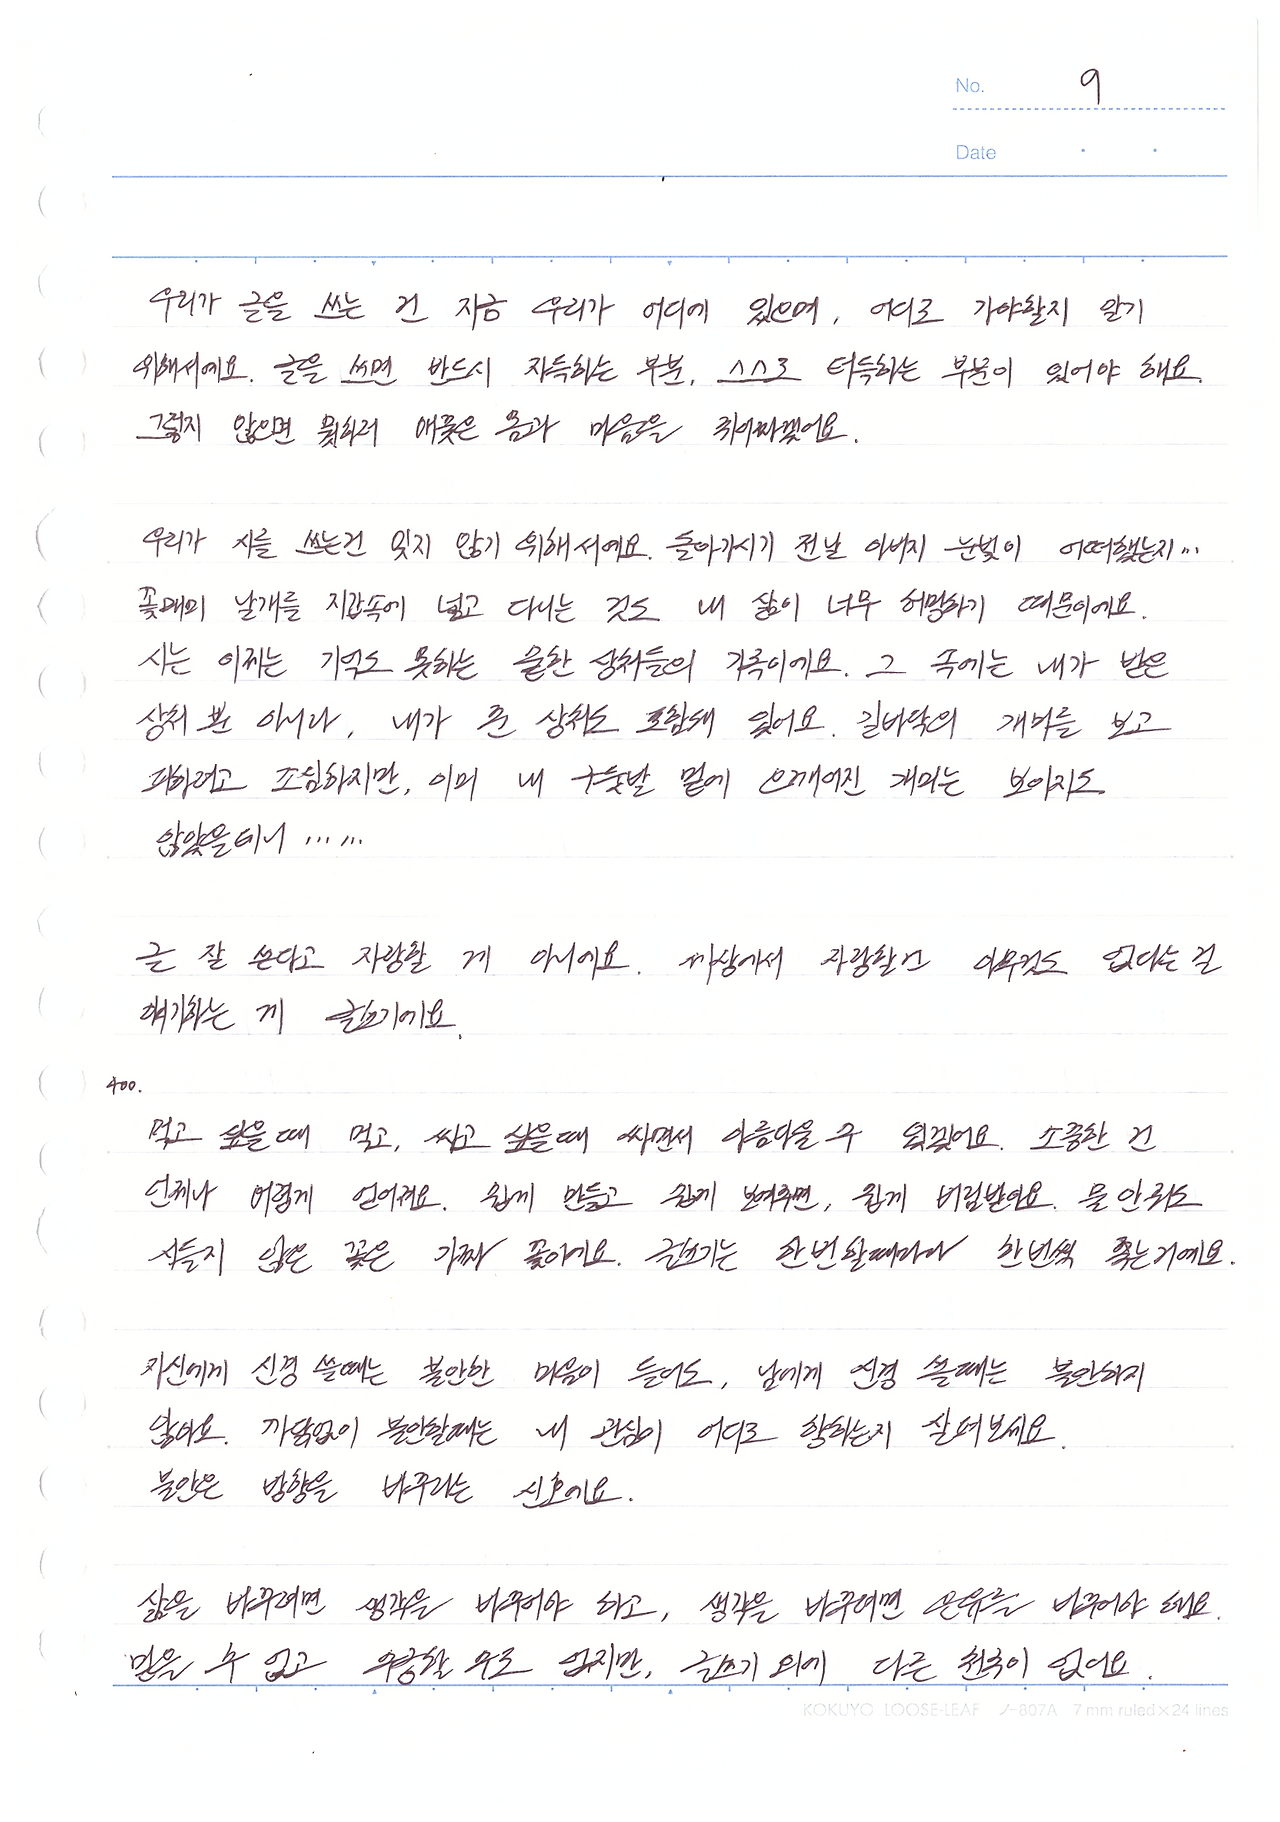 No. 9
Date
우리가 글을 쓰는 건 지금 우리가 어디에 있으며, 어디로 가야할지 알기
위해서예요. 글을 쓰면 반드시 자득하는 부분, 스스로 터득하는 부분이 있어야 해요.
그렇지 않으면 뭣하러 애꿎은 몸과 마음을 쥐어짜겠어요.
우리가 시를 쓰는건 잊지 않기 위해서예요. 돌아가시기 전날 아버지 눈빛이 어떠했는지…
꽃매미 날개를 지갑속에 넣고 다니는 것도 내 삶이 너무 허망하기 때문이에요.
시는 이제는 기억도 못하는 숱한 상처들의 기록이에요. 그 속에는 내가 받은
상처 뿐 아니라, 내가 준 상처도 포함돼 있어요. 길바닥의 개미를 보고
피하려고 조심하지만, 이미 내 구둣발 밑에 으깨어진 개미는 보이지도
않았을테니 ……
글 잘 쓴다고 자랑할 게 아니에요. 세상에서 자랑할건 아무것도 없다는 걸
얘기하는 게 글쓰기예요.
400.
먹고 싶을때 먹고, 싸고 싶을때 싸면서 아름다울 수 없겠어요. 소중한 건
언제나 어렵게 얻어져요. 쉽게 만들고 쉽게 보여주면, 쉽게 버림받아요. 물 안줘도
시들지 않은 꽃은 가짜 꽃이에요. 글쓰기는 한번할때마다 한번씩 죽는거예요.
자신에게 신경 쓸때는 불안한 마음이 들어도, 남에게 신경 쓸때는 불안하지
않아요. 까닭없이 불안할때는 내 관심이 어디로 향하는지 살펴보세요.
불안은 방향을 바꾸라는 신호예요.
삶을 바꾸려면 생각을 바꾸어야 하고, 생각을 바꾸려면 은유를 바꾸어야 해요.
믿을 수 없고 수긍할 수도 없지만, 글쓰기 외에 다른 천국이 없어요.
KOKUYO LOOSE-LEAF ノ-807A 7 mm ruled×24 lines